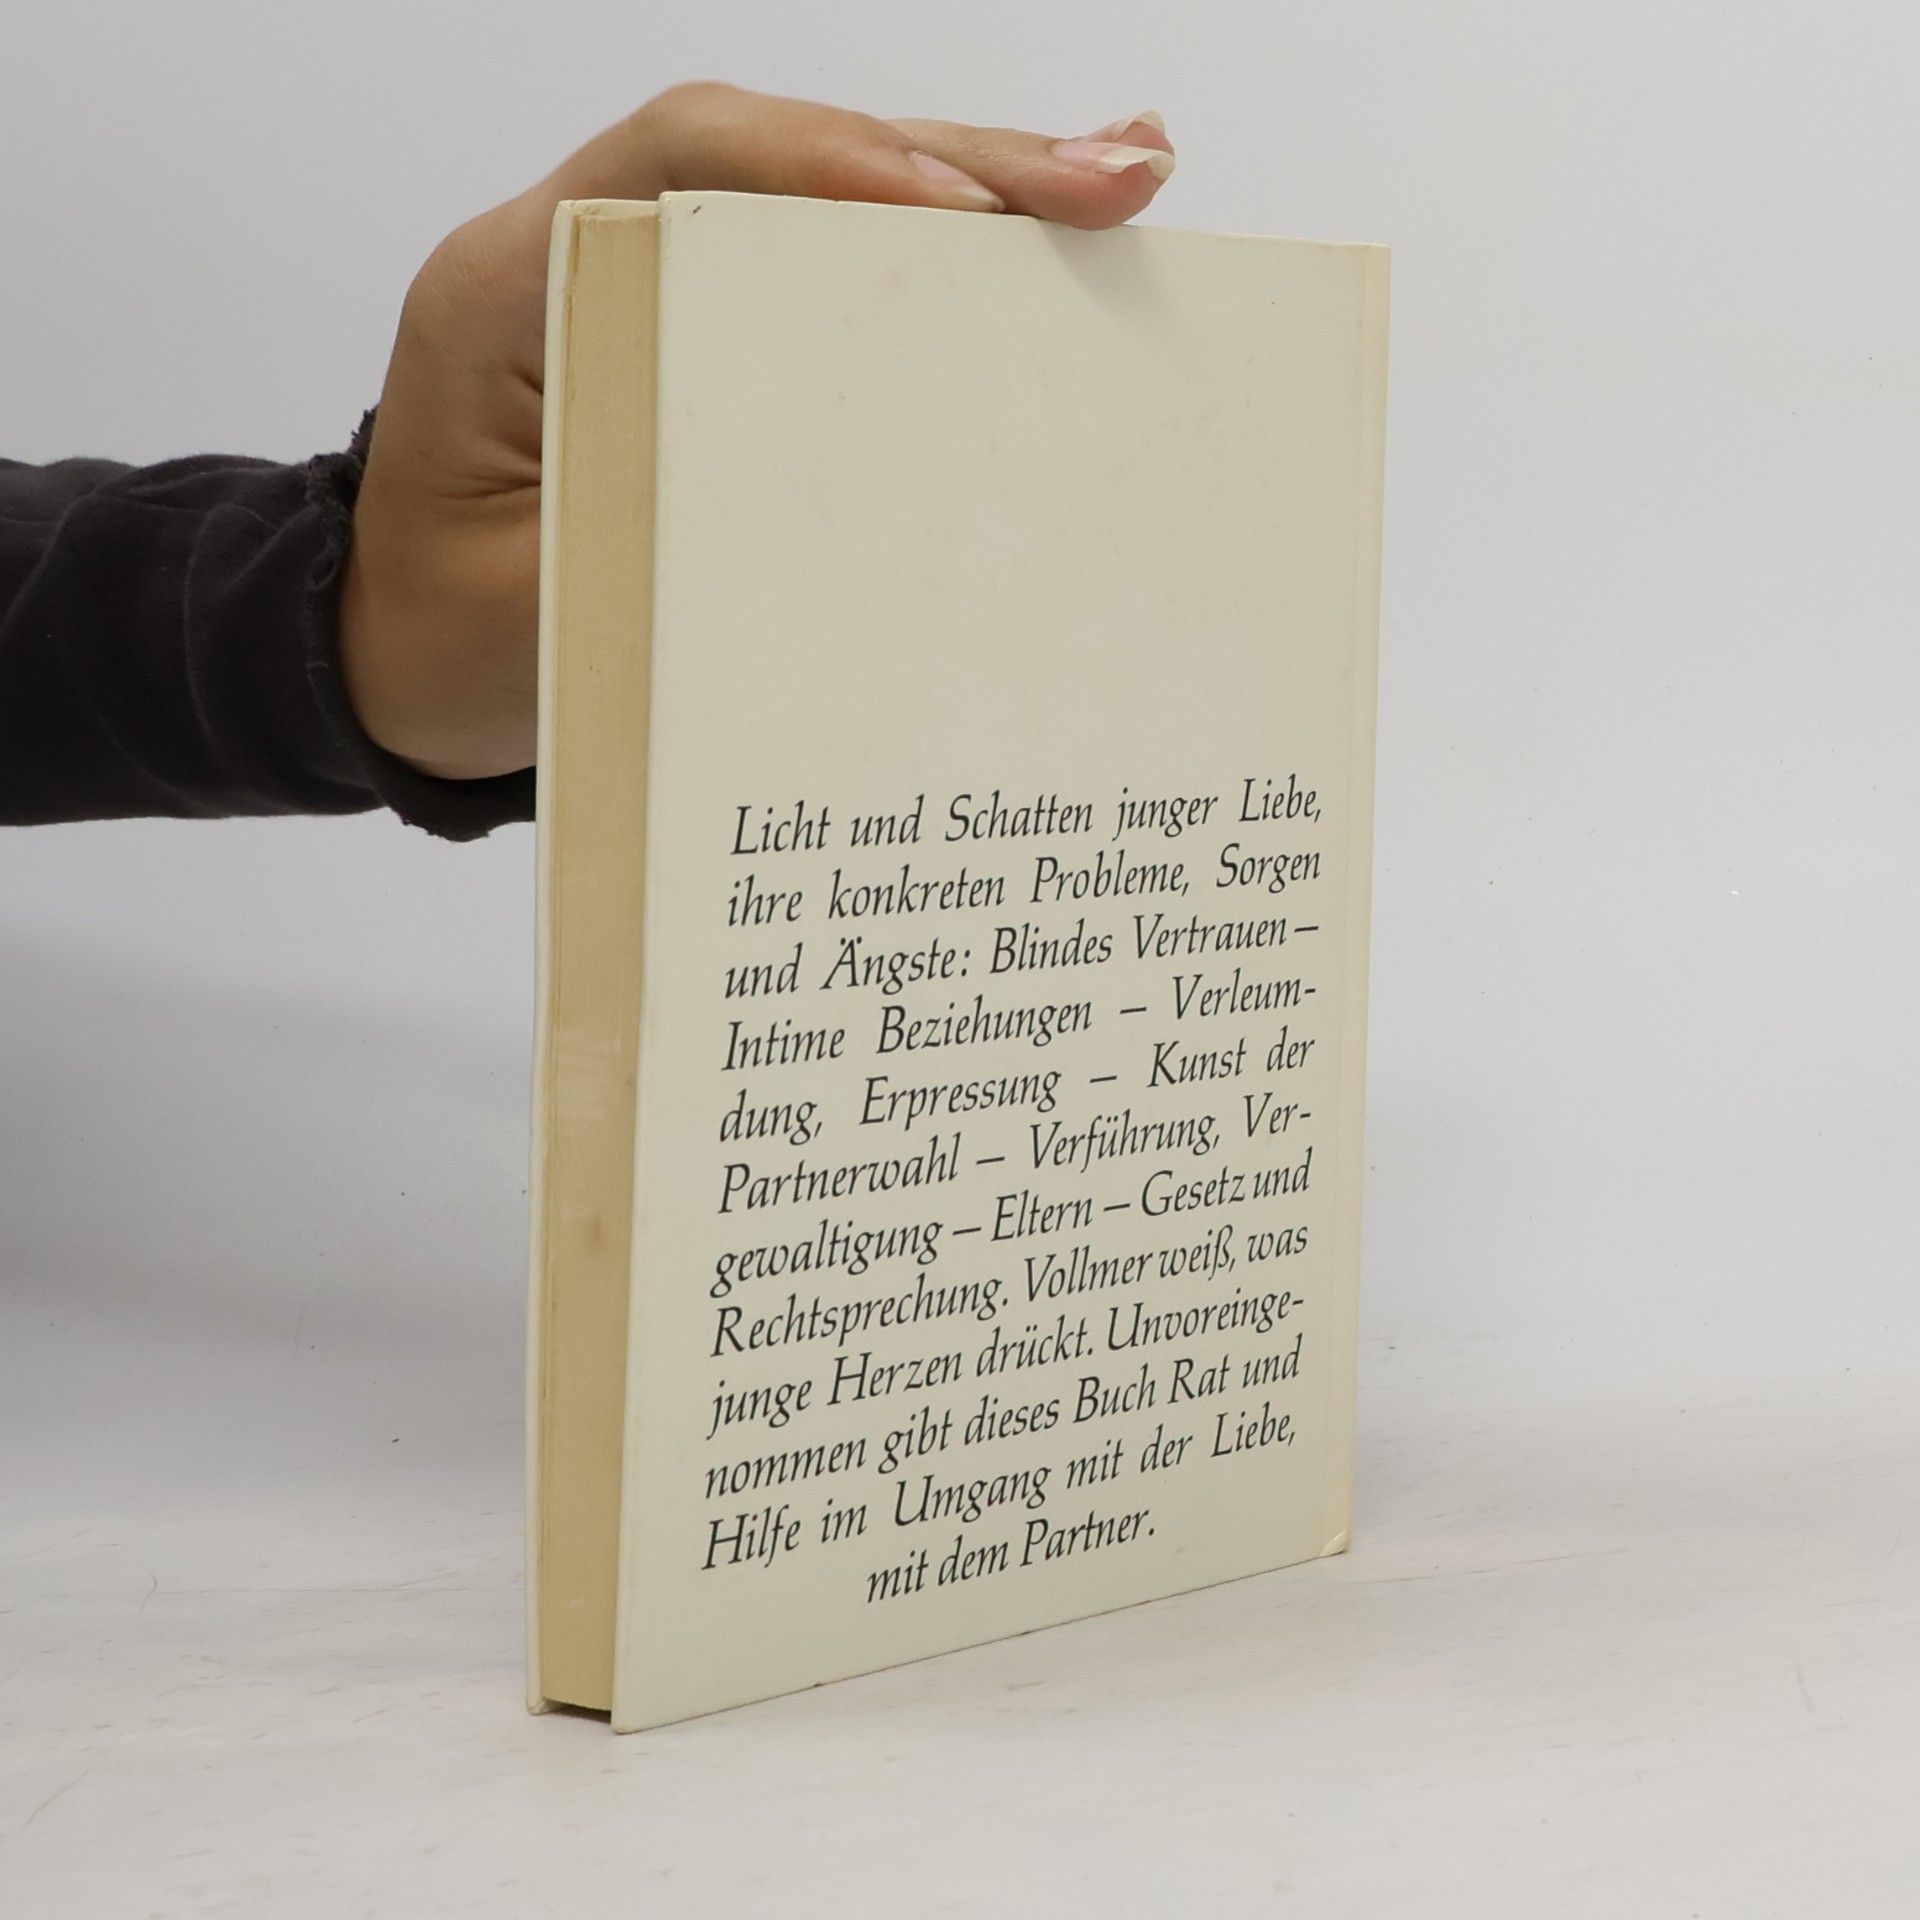 Licht und Schatten junger Liebe,
ihre konkreten Probleme, Sorgen
und Ängste: Blindes Vertrauen –
Intime Beziehungen – Verleum-
dung, Erpressung – Kunst der
Partnerwahl – Verführung, Ver-
gewaltigung – Eltern – Gesetz und
Rechtsprechung. Vollmer weiß, was
junge Herzen drückt. Unvoreinge-
nommen gibt dieses Buch Rat und
Hilfe im Umgang mit der Liebe,
mit dem Partner.